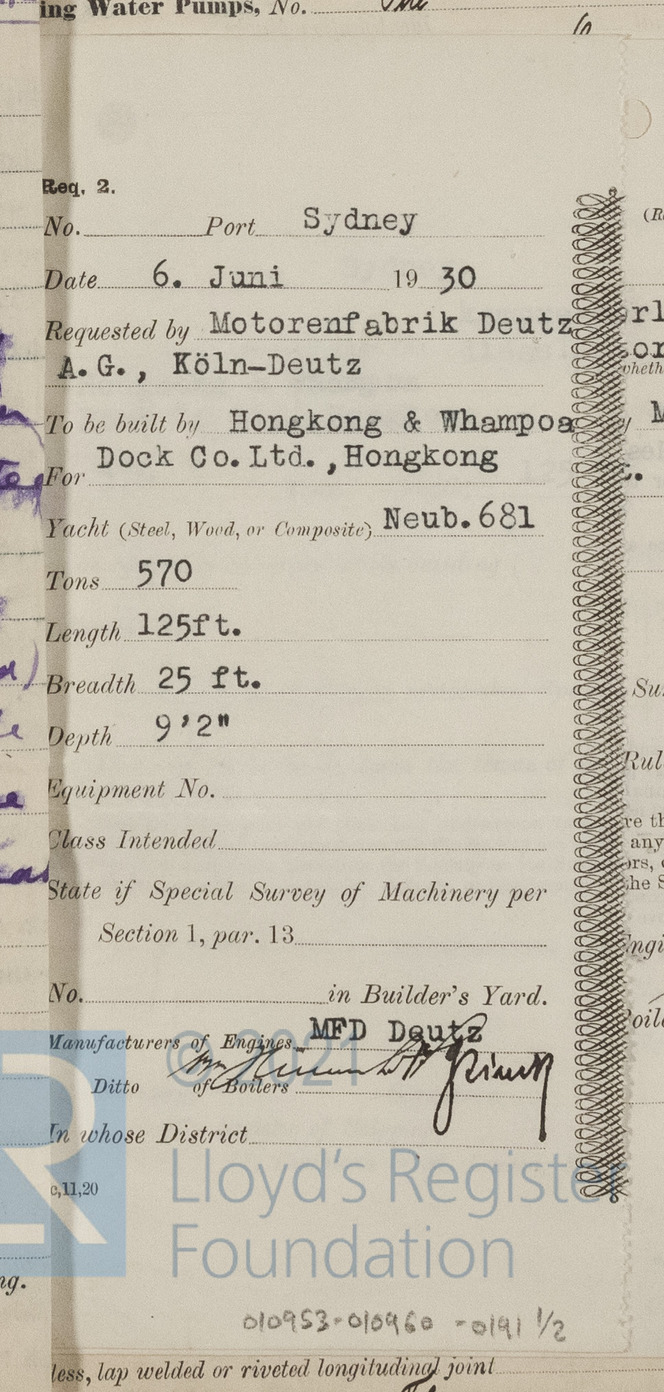 ing Water Pumps, No.
Req. 2.
No. Port Sydney
Date 6. Juni 19 30
Requested by Motorenfabrik Deutz
A.G., Köln-Deutz
To be built by Hongkong & Whampoa
Dock Co.Ltd.,Hongkong
For
Yacht (Steel, Wood, or Composite) Neub.681
Tons 570
Length 125ft.
Breadth 25 ft.
Depth 9'2"
Equipment No.
Class Intended
State if Special Survey of Machinery per
Section 1, par. 13
No. in Builder's Yard.
Manufacturers of Engines MFD Deutz
Ditto of Boilers
In whose District
c,11,20
© 2021
Lloyd's Register
Foundation
ng.
010953-010960-0191 1/2
less, lap welded or riveted longitudinal joint